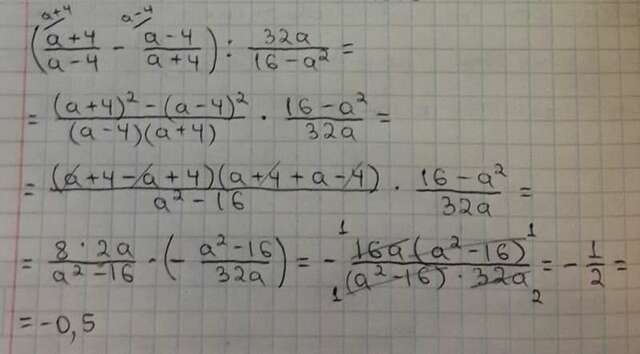 a+4 a-4
(a+4/a-4 - a-4/a+4) : 32a/16-a² =
= (a+4)²-(a-4)²/(a-4)(a+4) · 16-a²/32a =
= (a+4-a+4)(a+4+a-4)/a²-16 · 16-a²/32a =
= 8·2a/a²-16 · (- a²-16/32a) = - 1 16a(a²-16) 1/1 (a²-16)·32a 2 = - 1/2 =
= -0,5